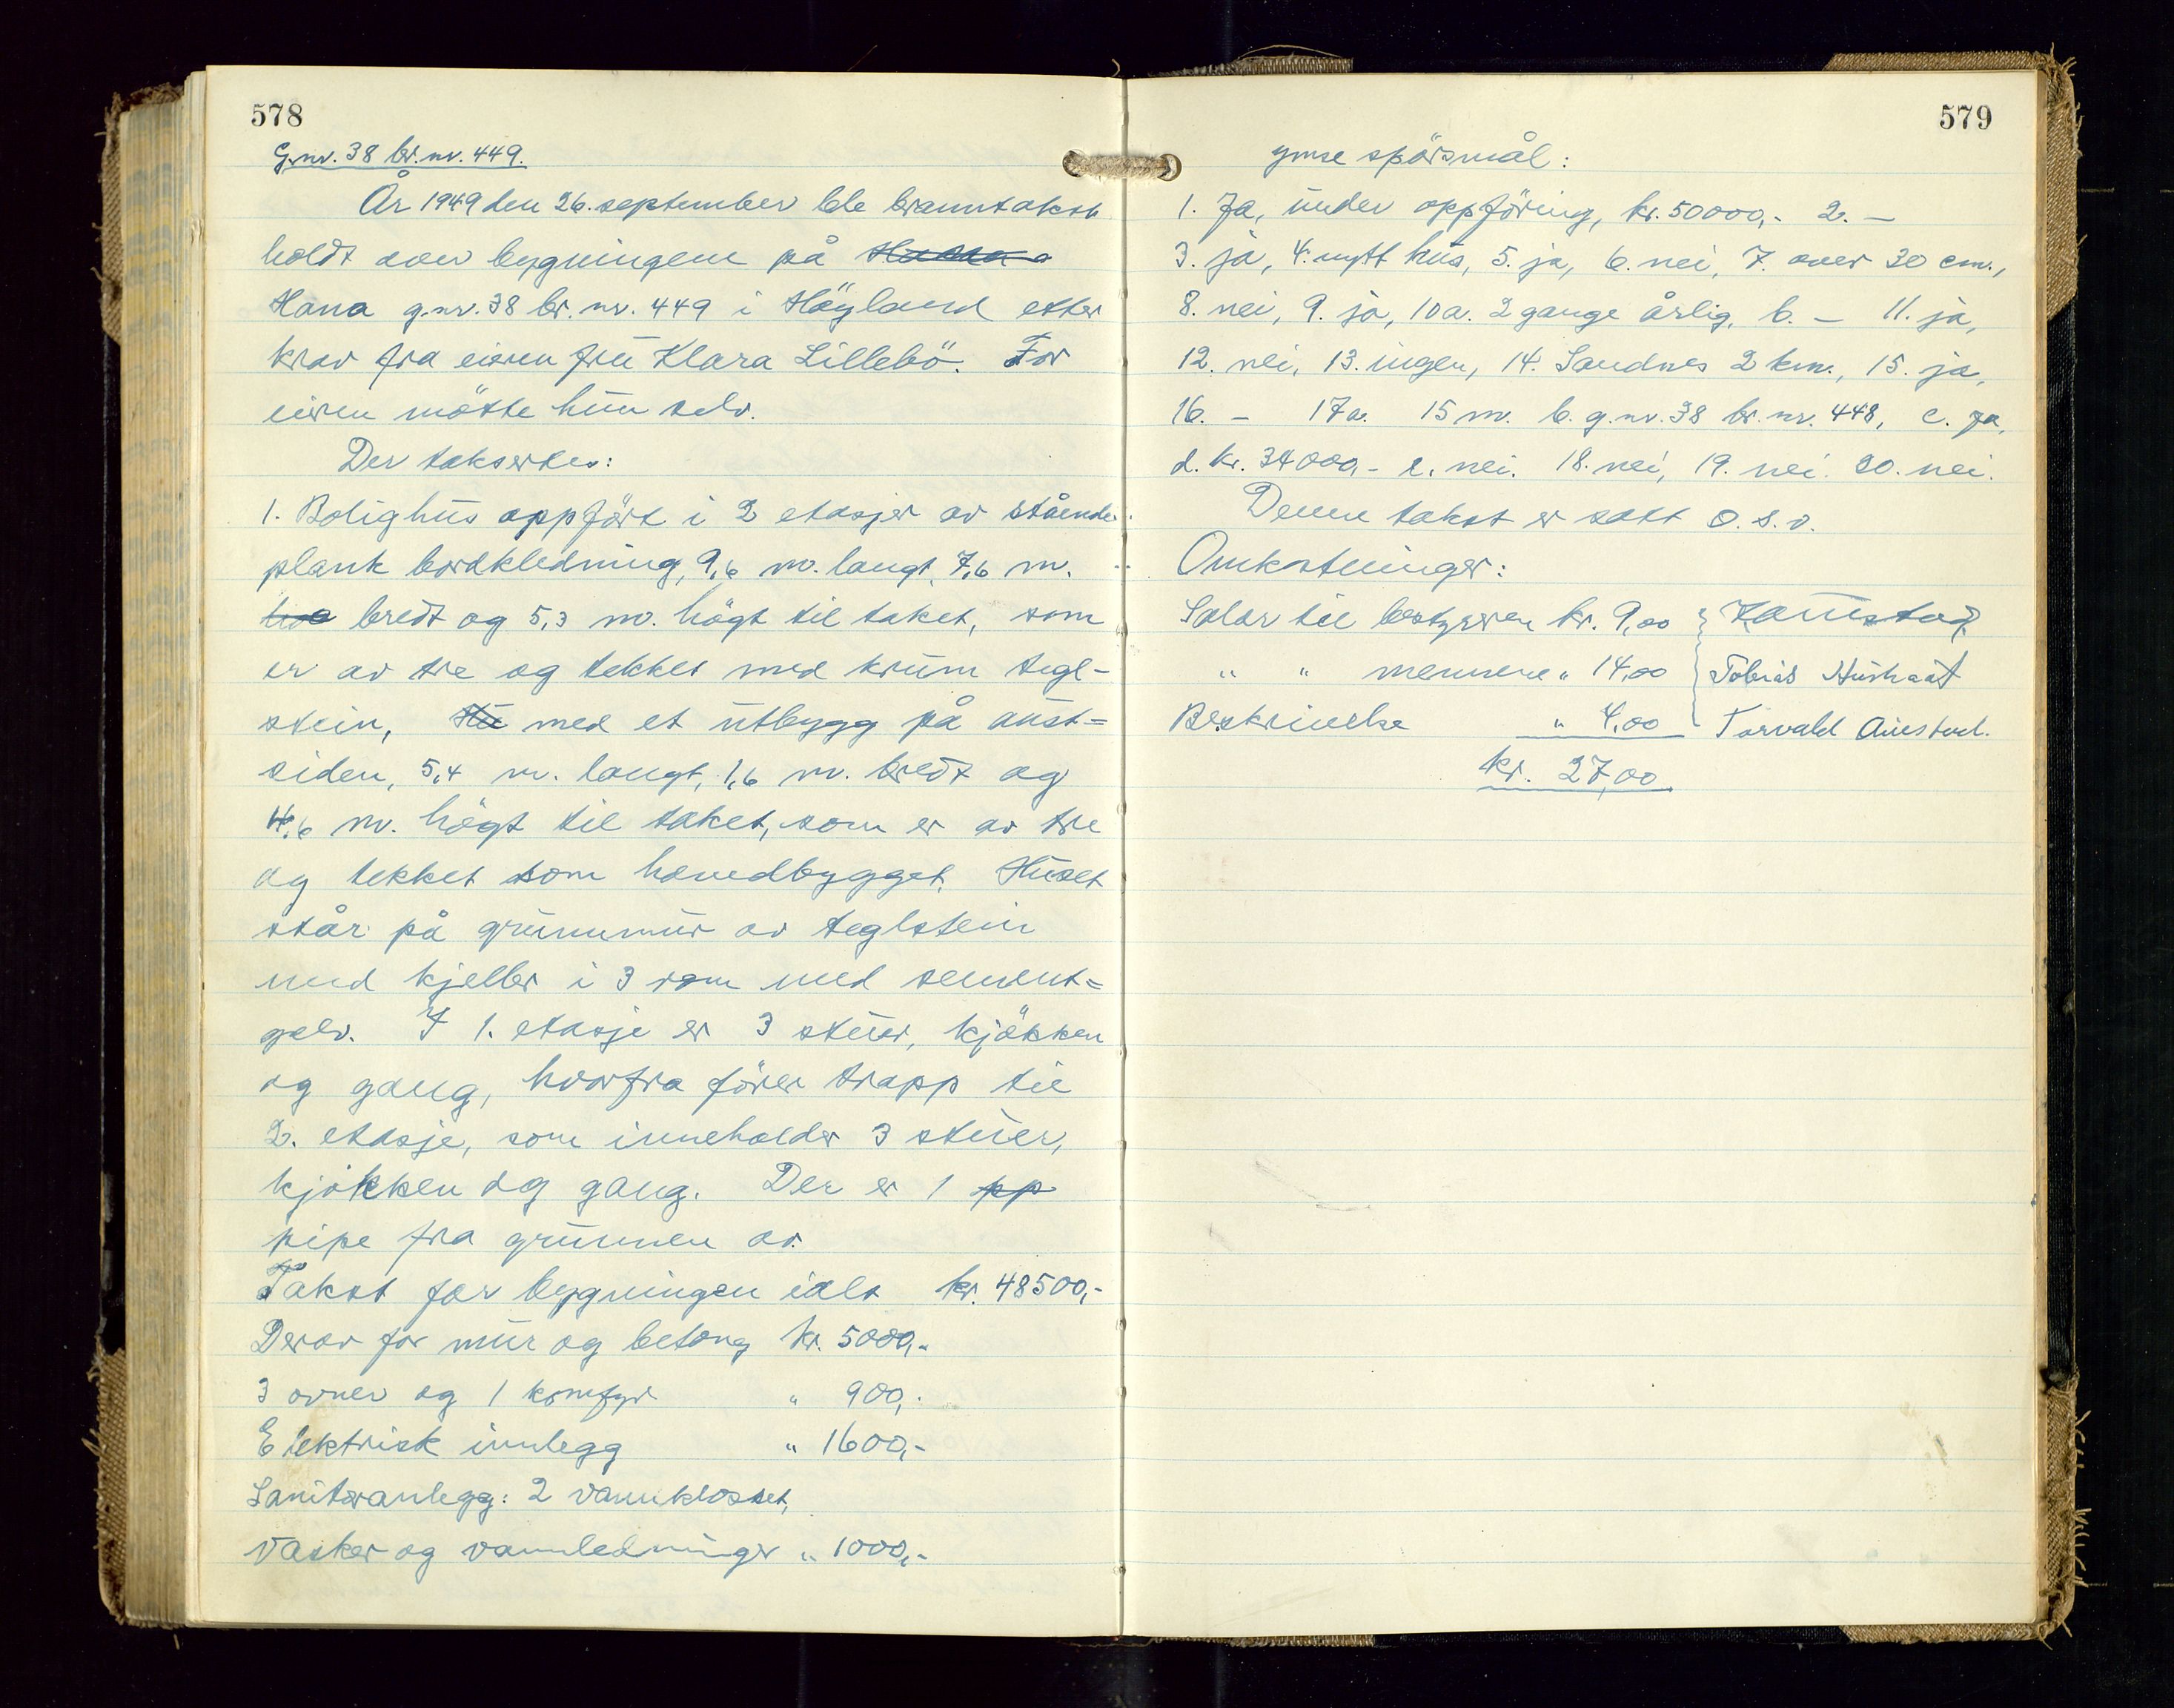 578
G.nr. 38 br.nr. 449.
År 1949 den 26. september ble branntakst
holdt over bygningene på
Hana g.nr. 38 br. nr. 449 i Höyland etter
krav fra eieren frü Klara Lillebö. For
eieren mötte hün selv.
Der taksertes:
1. Bolighüs oppfört i 2 etasjer av stående
plank bordkledning, 9,6 m. langt, 7,6 m.
bredt og 5,3 m. högt til taket, som
er av tre og tekket med krüm tegl-
stein, med et ütbygg på aüst=
siden, 5,4 m. langt, 1,6 m. bredt og
4,6 m. högt til taket, som er av tre
og tekket som hovedbygget. Hüset
står på grünnmür av teglstein
med kjeller i 3 rom med sement=
golv. I 1. etasje er 3 stüer, kjökken
og gang, hvorfra förer trapp til
2. etasje, som inneholder 3 stüer,
kjökken og gang. Der er 1 pp
pipe fra grünnen av.
Takst for bygningen ialt kr. 48500,-
Derav for mür og betong kr. 5000,-
3 ovner og 1 komfyr " 900,-
Elektrisk innlegg " 1600,-
Sanitæranlegg: 2 vannklosset,
vasker og vannledninger " 1000,-
579
ymse spörsmål:
1. Ja, ünder oppföring, kr. 50000,- 2. -
3. ja, 4. nytt hüs, 5. ja, 6. nei, 7. over 30 cm.,
8. nei, 9. ja, 10a. 2 gange årlig, b. - 11. ja,
12. nei, 13. ingen, 14. Sandnes 2 km., 15. ja,
16. - 17a. 15 m. b. g.nr. 38 br. nr. 448, c. ja,
d. kr. 34000,- e. nei. 18. nei, 19. nei. 20. nei.
Denne takst er satt o.s.v.
Omkostninger:
Salær til bestyreren kr. 9,00
" " mennene " 14,00 Tobias
Beskrivelse " 4,00 Torvald Aüestad.
kr. 27,00